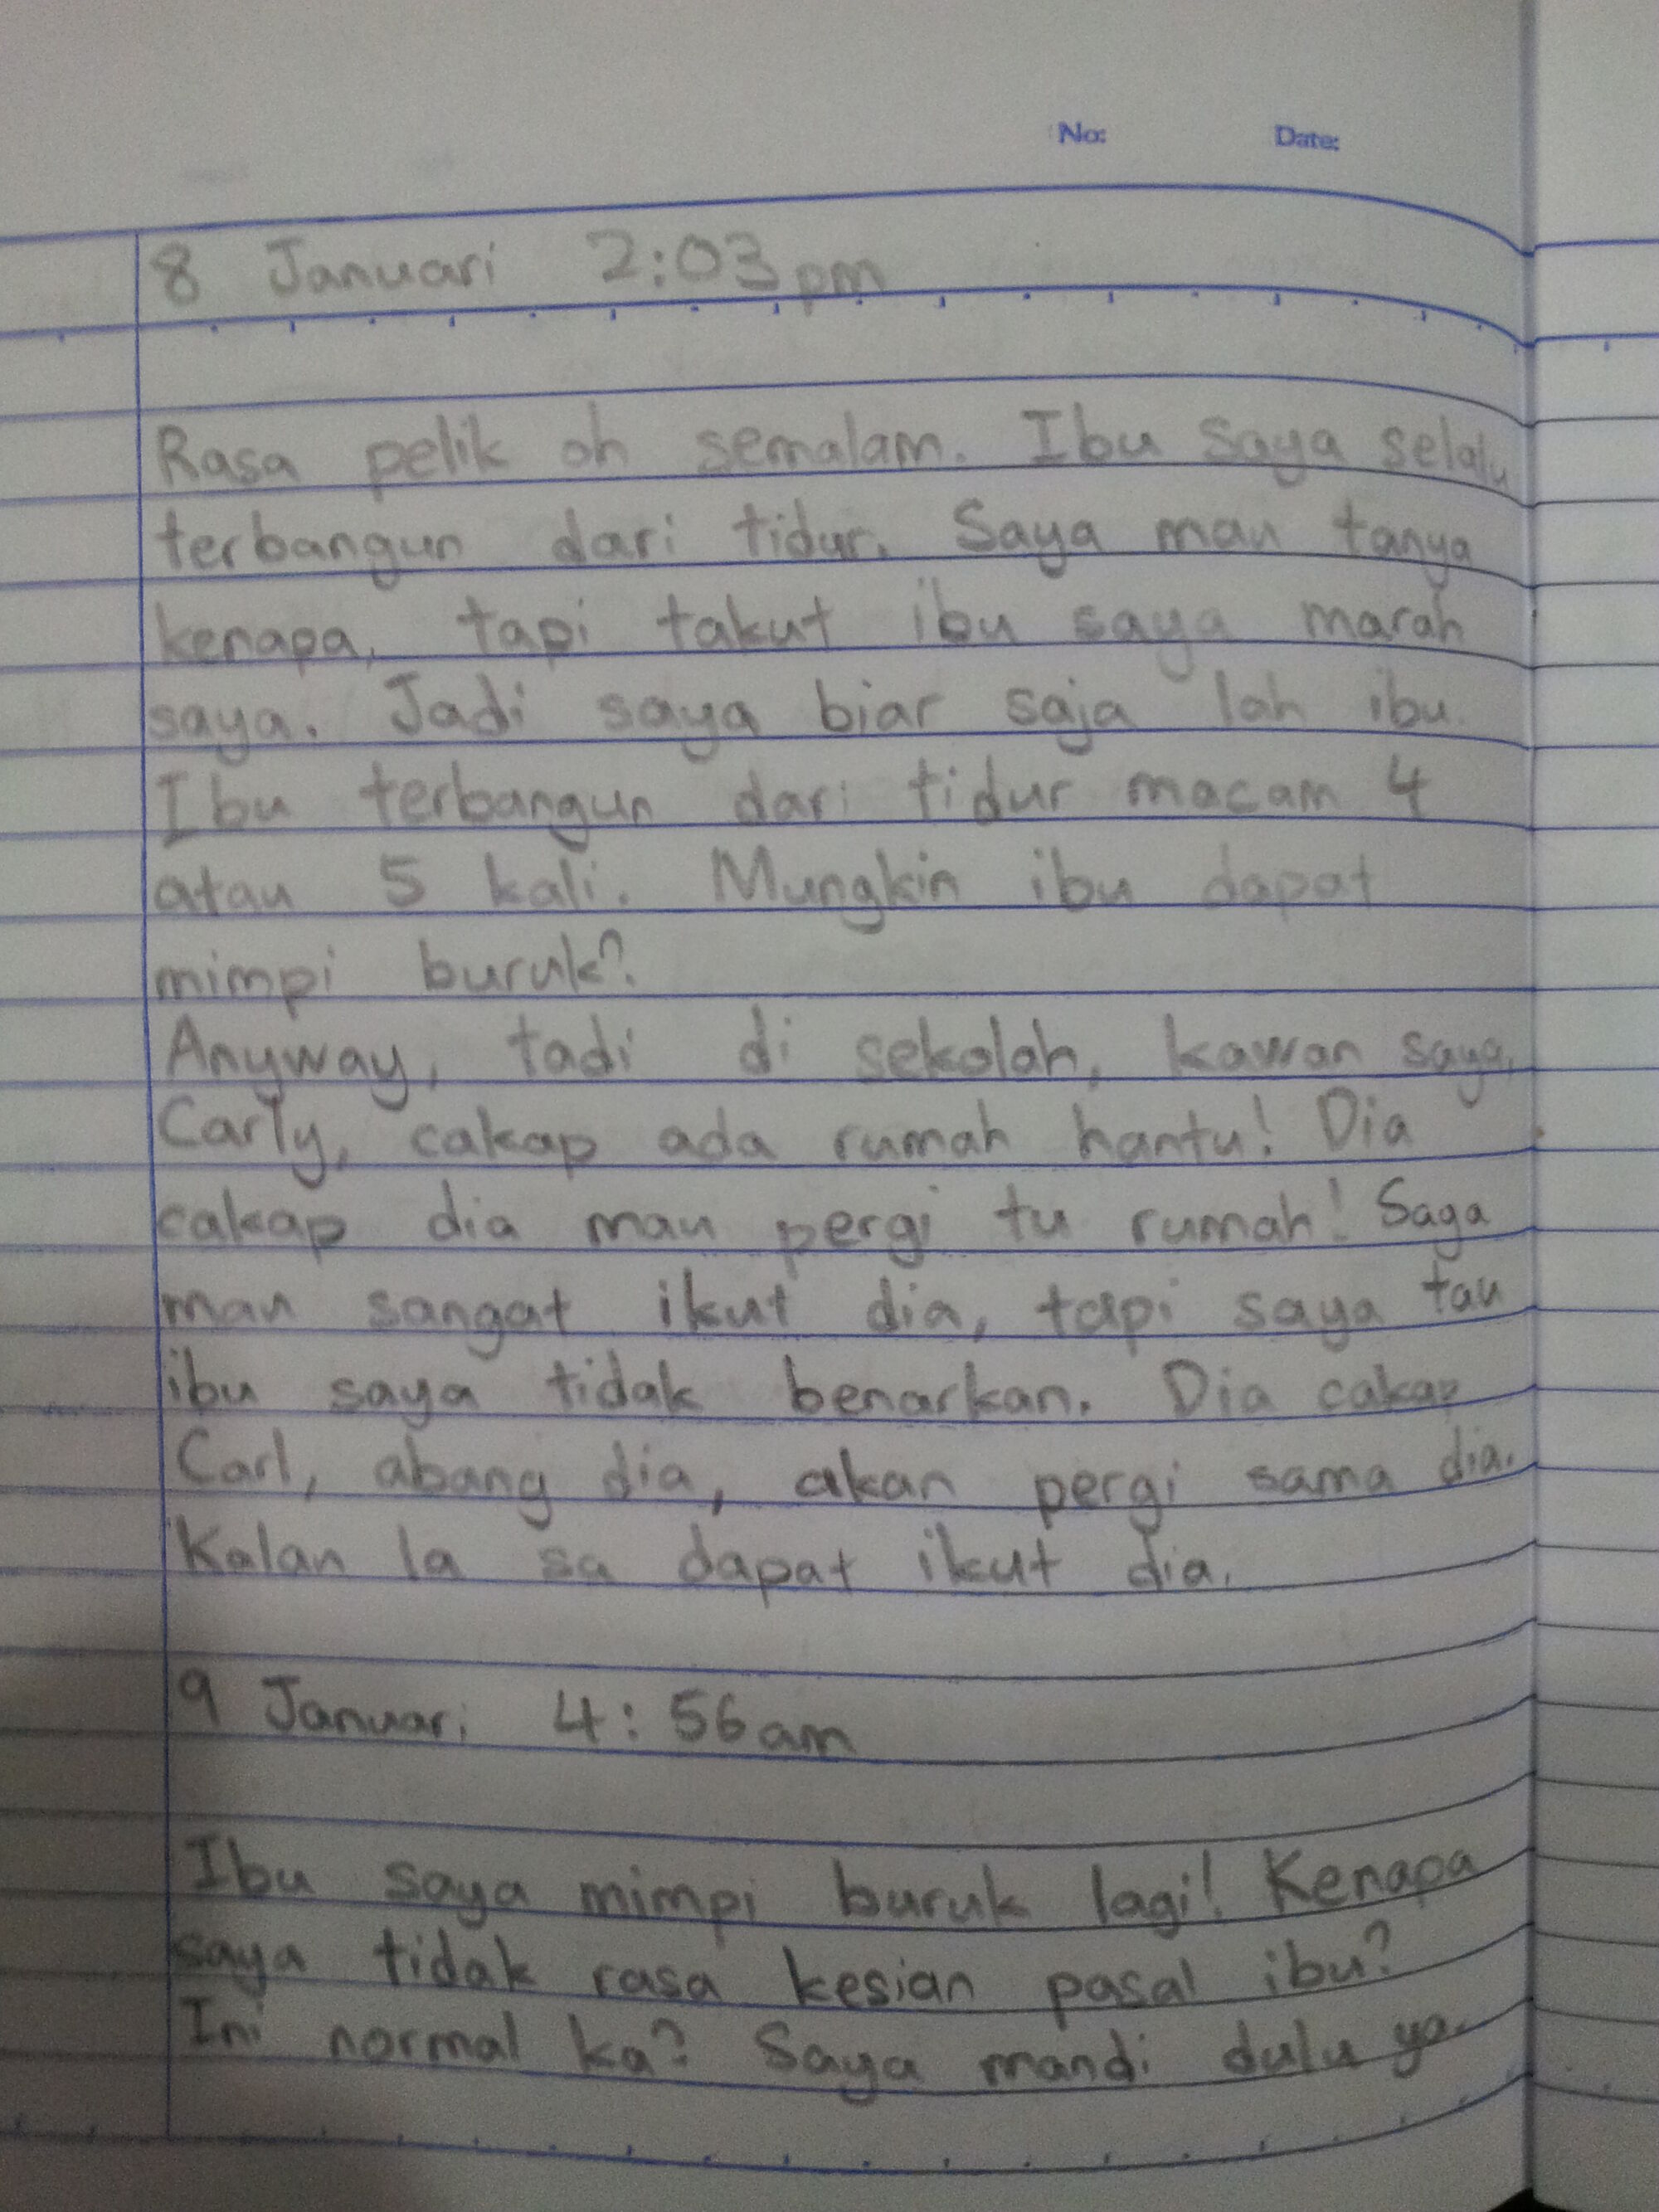 No: Date:
8 Januari 2:03pm
Rasa pelik oh semalam. Ibu saya selalu
terbangun dari tidur. Saya mau tanya
kenapa, tapi takut ibu saya marah
saya. Jadi saya biar saja lah ibu.
Ibu terbangun dari tidur macam 4
atau 5 kali. Mungkin ibu dapat
mimpi buruk?
Anyway, tadi di sekolah, kawan saya,
Carly, cakap ada rumah hantu! Dia
cakap dia mau pergi tu rumah! Saya
mau sangat ikut dia, tapi saya tau
ibu saya tidak benarkan. Dia cakap
Carl, abang dia, akan pergi sama dia.
Kalau la sa dapat ikut dia.
9 Januari 4:56am
Ibu saya mimpi buruk lagi! Kenapa
saya tidak rasa kesian pasal ibu?
Ini normal ka? Saya mandi dulu ya.